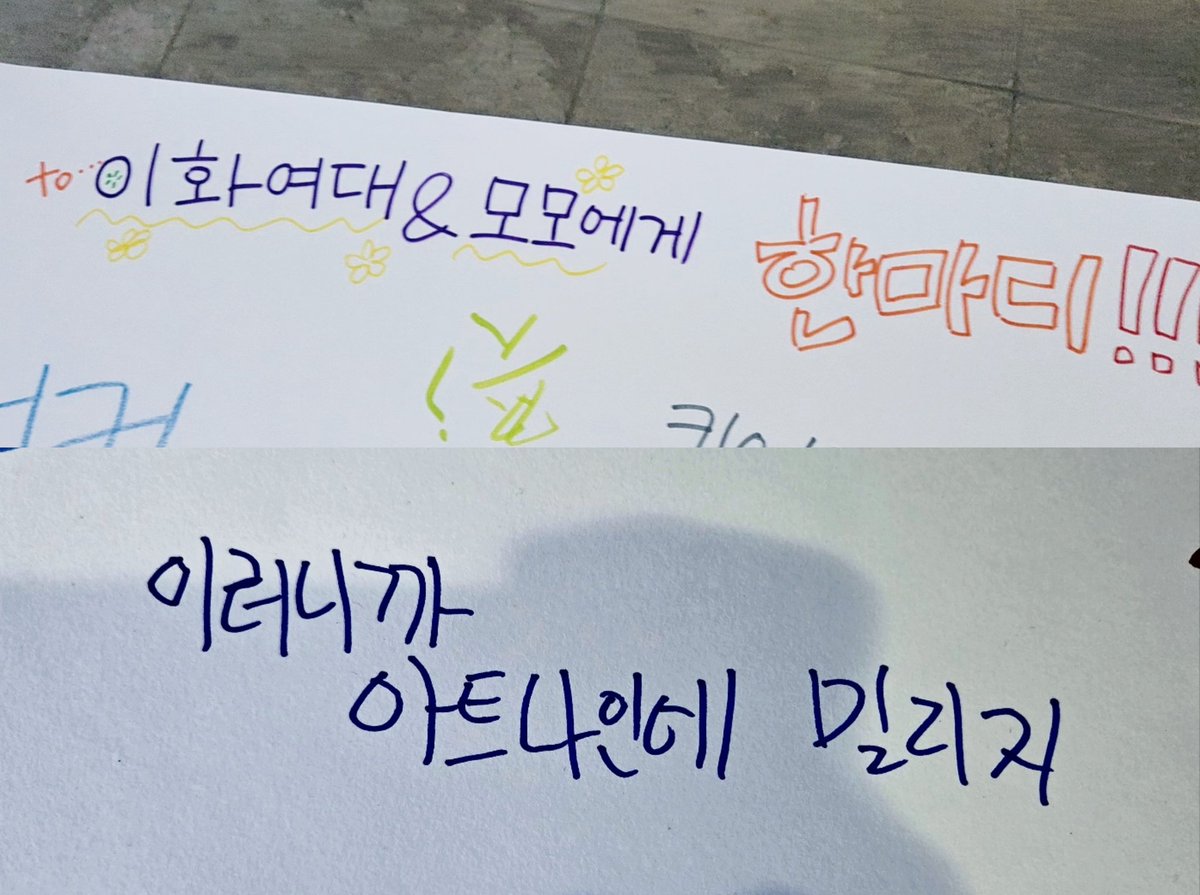 to… 이화여대 & 모모에게 한마디!!!
이러니까
아트나인에 밀리지